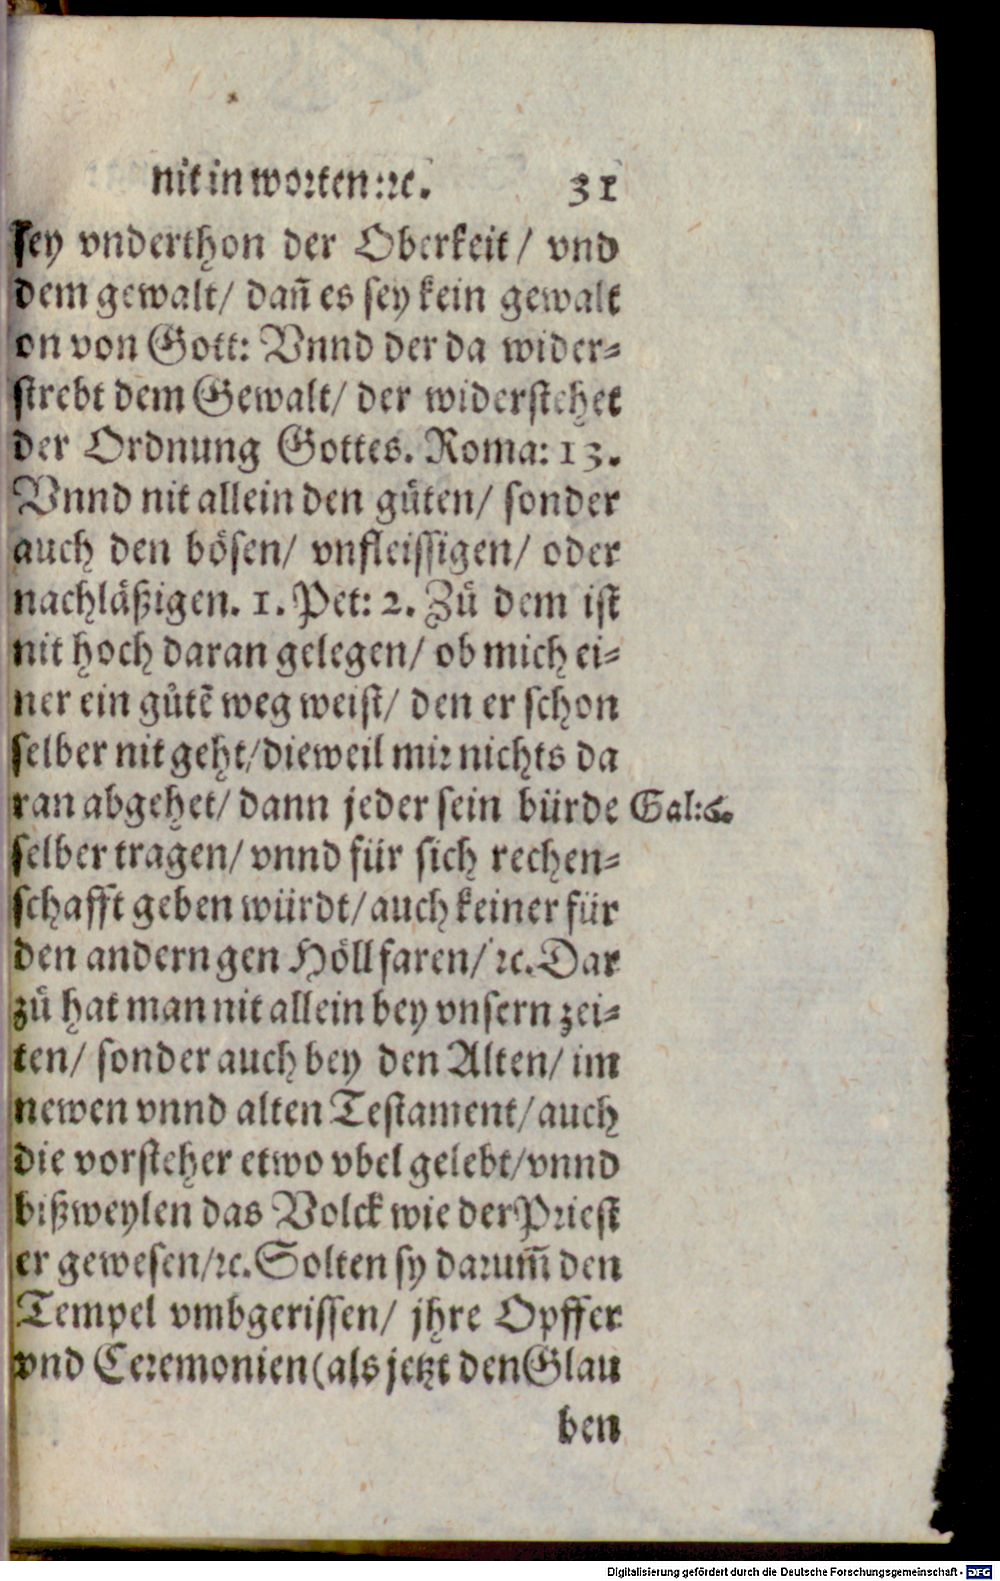 nit in worten:ꝛc. 31
sey vnderthon der Oberkeit/ vnd
dem gewalt/ dañ es sey kein gewalt
on von Gott: Vnnd der da wider⸗
strebt dem Gewalt/ der widerstehet
der Ordnung Gottes. Roma: 13.
Vnnd nit allein den gůten/ sonder
auch den bösen/ vnfleissigen/ oder
nachläßigen. 1. Pet: 2. Zů dem ist
nit hoch daran gelegen/ ob mich ei⸗
ner ein gůtẽ weg weist/ den er schon
selber nit geht/ dieweil mir nichts da
ran abgehet/ dann jeder sein bürde Gal:6.
selber tragen/ vnnd für sich rechen⸗
schafft geben würdt/ auch keiner für
den andern gen Höll faren/ ꝛc. Dar
zů hat man nit allein bey vnsern zei⸗
ten/ sonder auch bey den Alten/ im
newen vnnd alten Testament/ auch
die vorsteher etwo vbel gelebt/ vnnd
bißweylen das Volck wie der Priest
er gewesen/ ꝛc. Solten sy darum̃ den
Tempel vmbgerissen/ jhre Opffer
vnd Ceremonien (als jetzt den Glau
ben
Digitalisierung gefördert durch die Deutsche Forschungsgemeinschaft - DFG